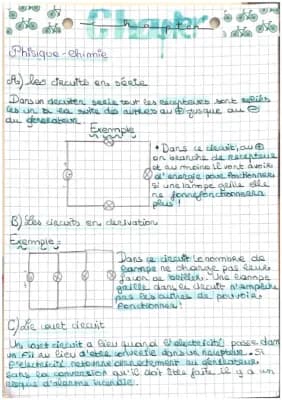 Chapter
Phisique-Chimie
A) les circuits en série
Dans un circuit en serie tout les récepteurs sont reliés
les un à la suite des autres au ⊕ jusque au ⊖
du générateur
Exemple
• Dans ce circuit, au ⊕
on branche de recepteur
et au moins il vont avoir
d'énergie pour fonctionner
si une lampe grille elle
ne fonnefonctionnera
plus !
B) Les circuits en derivation
Exemple:
Dans ce circuit le nombre de
lampe ne change pas leur
façon de briller. Une lampe
grillée dans le circuit n'empêche
pas les autres de pouvoir
fonctionner!
C) Le court circuit
Un court circuit a lieu quand l'électricité passe dans
un fil au lieu d'etre convertie dans un recepteur. Si
l'électricité retourne directement au générateur
sans la conversion qu'il doit être faite il y a un
risque d'alarme incendie.